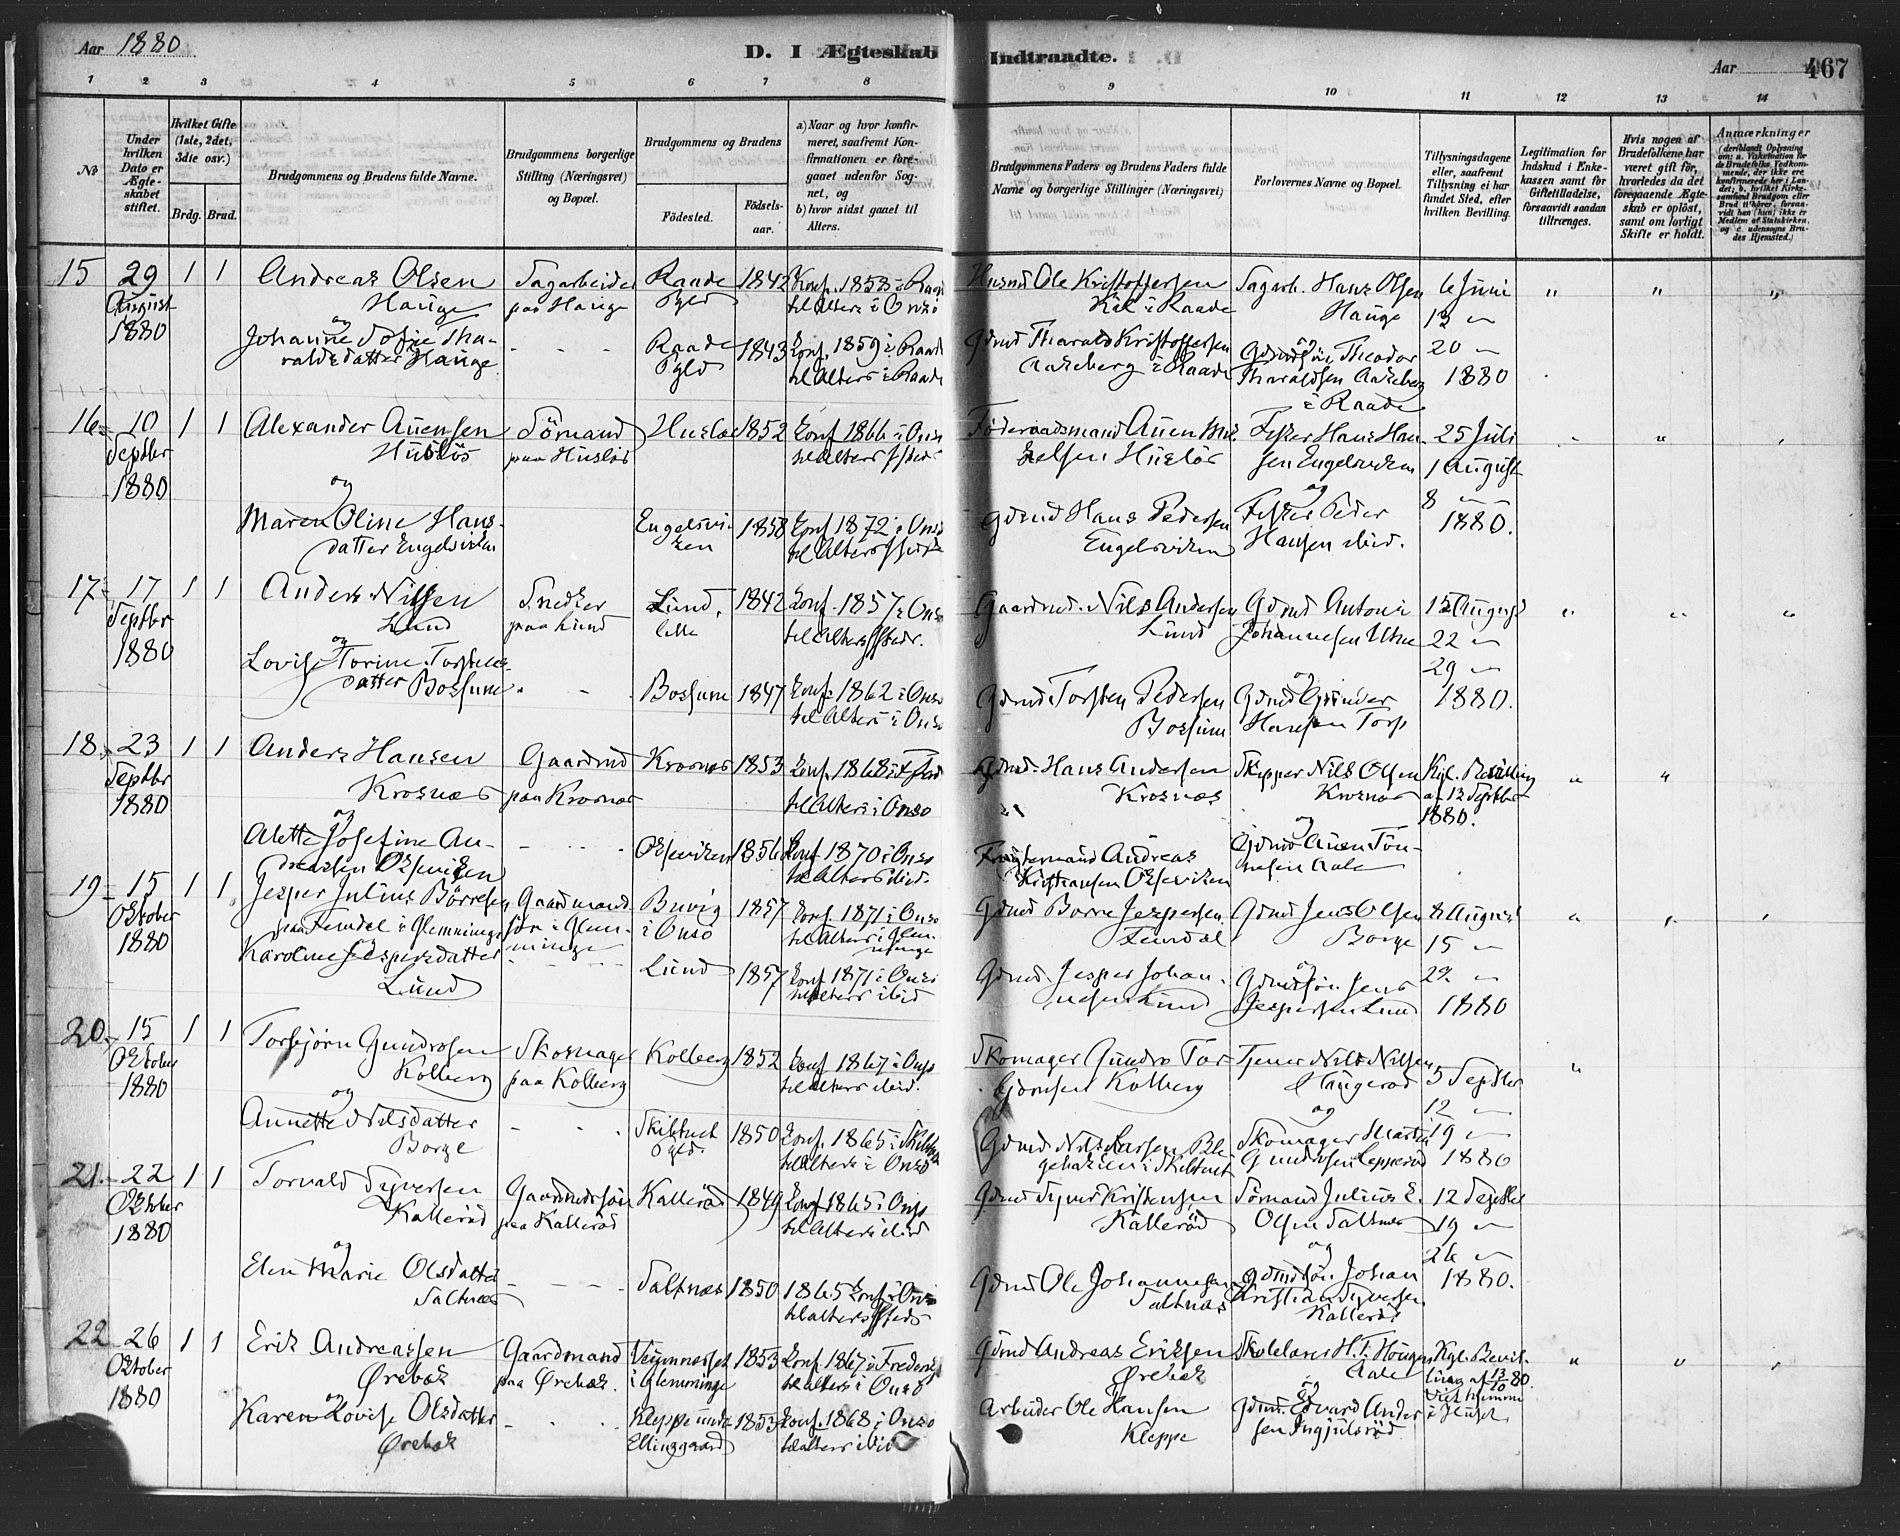 Aar 1880
D. I Ægteskab Indtraadte.
Aar 467
1 2 3 4 5 6 7 8 9 10 11 12 13 14
No
Under hvilken Dato er Ægteskabet stiftet.
Hvilket Gifte (1ste, 2det, 3die osv.)
Brdg. Brud.
Brudgommens og Brudens fulde Navne.
Brudgommens borgerlige Stilling (Næringsvei) og Bopæl.
Brudgommens og Brudens
Födested.
Födsels-aar.
a) Naar og hvor konfirmeret, saafremt Konfirmationen er foregaaet udenfor Sognet, og
b) hvor sidst gaaet til Alters.
Brudgommens Faders og Brudens Faders fulde Navne og borgerlige Stillinger (Næringsvei)
Forlovernes Navne og Bopæl.
Tillysningsdagene eller, saafremt Tillysning ei har fundet Sted, efter hvilken Bevilling.
Legitimation for Indskud i Enkekassen samt for Giftetilladelse, forsaavidt saadan tiltrænges.
Hvis nogen af Brudefolkene har været gift før, hvorledes da det foregaaende Ægteskab er oplöst, samt om lovligt Skifte er holdt.
Anmærkninger
15 29 August 1880 1 1
Andreas Olsen Hauge
Sagarbeider paa Hauge
Raade Pgld 1842
Konf. 1858 i Raade
til Alters i Onsö
Husmd Ole Kristoffersen
i Raade
Sagarb. Hans Olsen Hauge
6 Juni
13 "
20 "
1880
og
Johanne Sofie Tharaldsdatter Hauge
Raade Pgld 1843
Konf. 1859 i Raade
til Alters i Raade
Gdmd Tharald Kristoffersen
Aakeberg i Raade
og
Gdmdsön Theodor Tharaldsen Aakeberg i Raade
16 10 Septbr 1880 1 1
Alexander Auensen Huslös
Sömand paa Huslös
Huslös 1852
Konf 1866 i Onsö
til Alters ssteds
Föderaadsmand Auen Mikkelsen Huslös
Fisker Hans Hansen Engelsviken
25 Juli
1 August
8 "
1880.
og
Maren Oline Hansdatter Engelsviken
Engelsviken 1858
Konf 1872 i Onsö
til Alters ssteds
Gdmd Hans Pedersen Engelsviken
og
Fisker Peder Hansen ibid.
17 17 Septbr 1880 1 1
Anders Nilsen Lund
Snedker paa Lund
Lund, lille 1842
Konf. 1857 i Onsö
til Alters sstedr.
Gaardmd. Nils Andersen Lund
Gdmd Anton Johannesen Utne
15 August
22 "
29 "
1880.
og
Lovise Torine Torstensdatter Bossum
Bossum 1847
Konf. 1862 i Onsö
til Alters i Onsö
Gdmd Torsten Pedersen Bossum
og
Gdmd Gunder Hansen Torp
18 23 Septbr 1880 1 1
Anders Hansen Krosnæs
Gaardmd paa Krosnæs
Krosnæs 1853
Konf. 1868
til Alters i Onsö
Gdmd. Hans Andersen Krosnæs
Skipper Nils Olsen Krosnæs
Kgl. Bevilling af 12 Septbr 1880.
og
Alette Josefine Andreasen Oksewiken
Okseviken 1856
Konf 1870 i Onsö
til Alters ibid.
Andreas Kristiansen Okseviken
og
Gdmd Auen Tönnesen Aale
19 15 Oktober 1880 1 1
Jesper Julius Börresen
paa Femdal i Glemminge
Gaardmandsön i Glemminge
Buvig i Onsö 1857
Konf. 1871 i Onsö
til Alters i Glemminge
Gdmd Börre Jespersen Femdal
Gdmd Jens Olsen Borge
8 August
15 "
22 "
1880
og
Karoline Jespersdatter Lund
Lund 1857
Konf 1871 i Onsö
til Alters ibid
Gdmd. Jesper Johannesen Lund
og
Gdmdsön Jens Jespersen Lund
20 15 Oktober 1880 1 1
Torbjörn Gundrosen Kolberg
Skomager paa Kolberg
Kolberg 1852
Konf 1867 i Onsö
til Alters ibid.
Skomager Gundro Torbjörnsen Kolberg
Tjener Nils Nilsen Haugeröd
5 Septbr
12 "
19 "
1880
og
Annette Nilsdatter Borge
Skibtvet Pgld. 1850
Konf. 1865 i Skibtvet
til Alters i Onsö
Gdmd Nils Larsen
i Skibtvet
og
Skomager Martin Gundrosen Kepperöd
21 22 Oktober 1880 1 1
Torvald Syversen Kalleröd
Gaardmdssön paa Kalleröd
Kalleröd 1849
Konf 1865 i Onsö
til Alters ibid
Gdmd Syver Kristensen Kalleröd
Sömand Julius E. Olsen Saltnæs
12 Septbr
19 "
26 "
1880.
og
Elen Marie Olsdatter Saltnæs
Saltnæs 1850
1865 Konf i Onsö
til alters ssteds
Gdmd Ole Johannesen Saltnæs
og
Gdmdsön Johan Kristian Syversen Kalleröd
22 26 Oktober 1880 1 1
Erik Andreassen Ørebæk
Gaardmand paa Ørebæk.
i Glemminge 1853
Konf. 1867 i Fredrikst
til Alters i Onsö
Gdmd Andreas Eriksen Ørebæk
Skolelærer H. T. Hougen Aale
Kgl. Bevilling af 13/10 80.
Viet hjemme i Huset
og
Karen Lovise Olsdatter Ørebæk
Kleppe under Elinggaard 1853
Konf. 1868 i Onsö
til alters ibid
Arbeider Ole Hansen Kleppe
og
Gdmd. Edvard Andersen Ingjulsröd